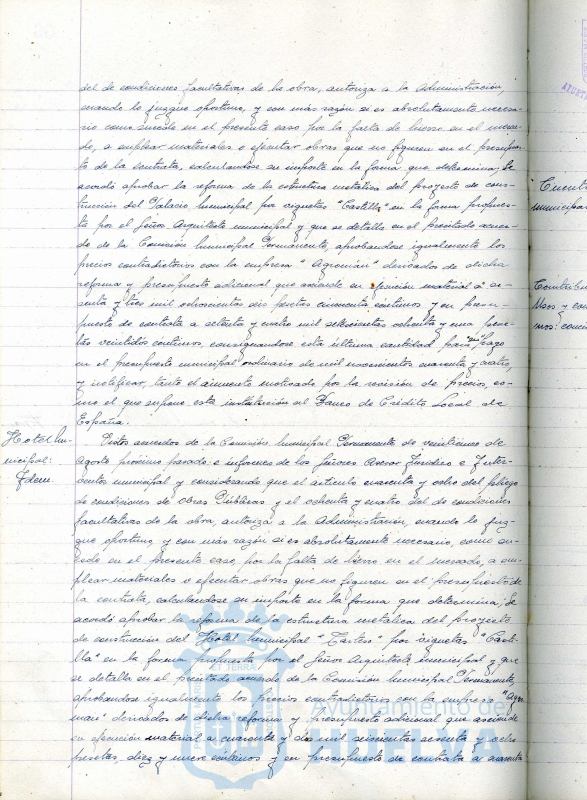 del de condiciones facultativas de la obra, autoriza a la Administración,
cuando lo juzgue oportuno, y con más razón si es absolutamente necesa-
rio como sucede en el presente caso por la falta de hierro en el merca-
do, a emplear materiales o ejecutar obras que no figuren en el presupues-
to de la contrata, calculandose su importe en la forma que determina; Se
acordó aprobar la reforma de la estructura metálica del proyecto de cons-
trucción del Palacio Municipal por viguetas "Castilla" en la forma propues-
ta por el Señor Arquitecto municipal y que se detalla en el precitado acuer-
do de la Comisión Municipal Permanente, aprobandose igualmente los
precios contradictorios con la empresa "Agroman" derivados de dicha
reforma y presupuesto adicional que asciende en ejecución material a se-
senta y tres mil ochocientas dos pesetas cincuenta centimos y en presu-
puesto de contrata a setenta y cuatro mil seiscientas ochenta y una pese-
tas veintidos centimos, consignandose esta ultima cantidad para su pago
en el presupuesto municipal ordinario de mil novecientos cuarenta y cuatro,
y notificar, tanto el aumento motivado por la revisión de precios, co-
mo el que supone esta instalación al Banco de Crédito Local de
España.
Hotel Mu-
nicipal:
Idem.
Vistos acuerdos de la Comisión Municipal Permanente de veinticinco de
Agosto próximo pasado e informes de los Señores Asesor Juridico e Inter-
ventor municipal y considerando que el articulo cuarenta y ocho del pliego
de condiciones de Obras Publicas y el ochenta y cuatro del de condiciones
facultativas de la obra, autoriza a la Administración, cuando lo juz-
gue oportuno y con más razón si es absolutamente necesario, como su-
cede en el presente caso, por la falta de hierro en el mercado, a em-
plear materiales o ejecutar obras que no figuren en el presupuesto de
la contrata, calculandose su importe en la forma que determina; Se
acordó aprobar la reforma de la estructura metálica del proyecto
de construcción del Hotel Municipal "Tartess" por viguetas "Casti-
lla" en la forma propuesta por el Señor Arquitecto municipal y que
se detalla en el precitado acuerdo de la Comisión Municipal Permanente,
aprobandose igualmente los precios contradictorios con la empresa "Agro-
man" derivados de dicha reforma y presupuesto adicional que asciende
en ejecución material a cuarenta y dos mil seiscientas sesenta y ocho
pesetas, diez y nueve centimos y en presupuesto de contrata a cuarenta
Cuenta
municipal
Contribu
Usos y con
mos:
Ayuntamiento de
HUELVA